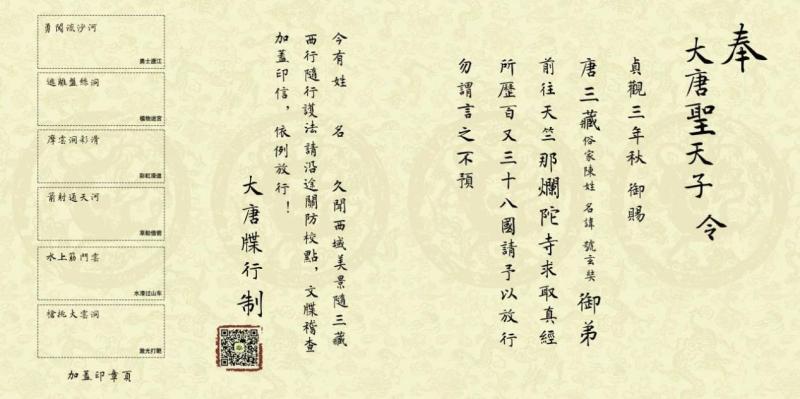 奉
大唐聖天子 令
貞觀三年秋 御賜
唐三藏俗家陳姓 名諱 號玄奘 御弟
前往天竺那爛陀寺求取真經
所歷百又三十八國請予以放行
勿謂言之不預
今有 姓 名 久聞西域美景隨三藏
西行隨行護法請沿途關防校點，文牒稽查
加蓋印信，依例放行！
大唐牒行 制
勇闖流沙河
勇士渡江
逃離盤絲洞
植物迷宫
摩雲洞彩滑
彩虹滑道
箭射通天河
草船借箭
水上筋門雲
水滑过山车
槍挑大雲洞
激光打靶
加蓋印章頁